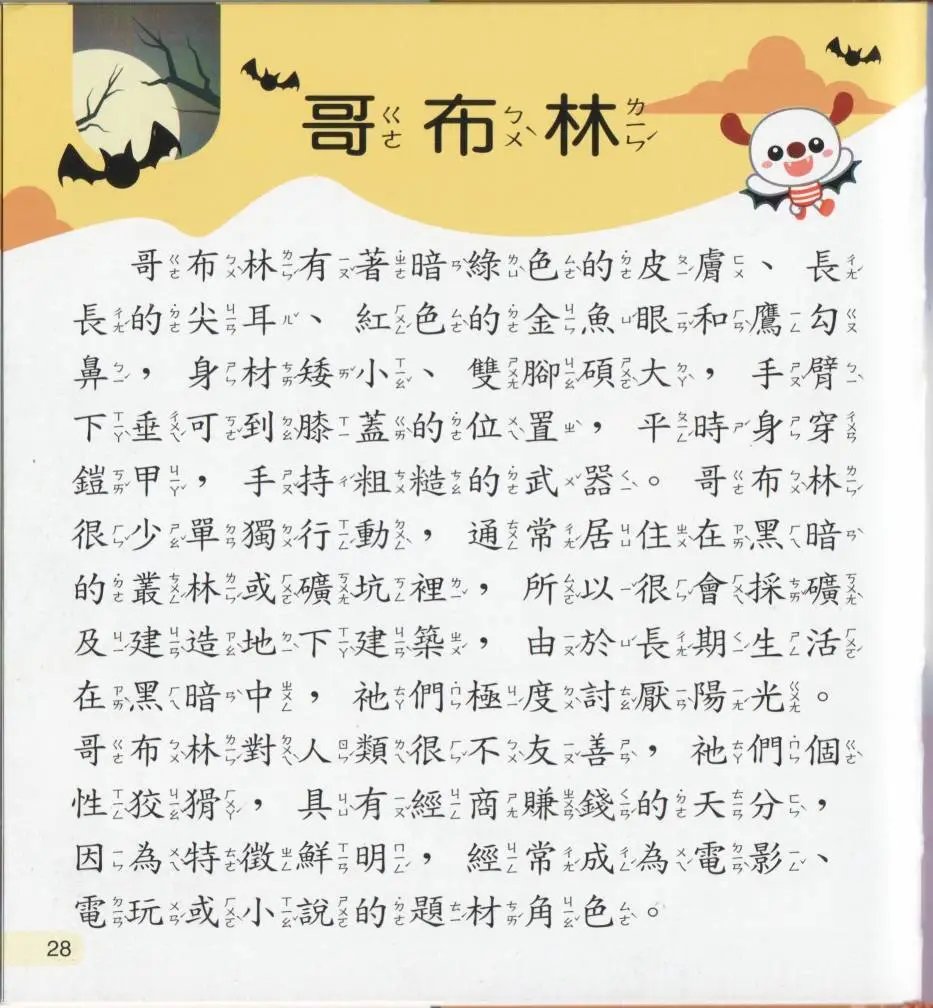 哥布林
哥布林有著暗綠色的皮膚、長
長的尖耳、紅色的金魚眼和鷹勾
鼻，身材矮小、雙腳碩大，手臂
下垂可到膝蓋的位置，平時身穿
鎧甲，手持粗糙的武器。哥布林
很少單獨行動，通常居住在黑暗
的叢林或礦坑裡，所以很會採礦
及建造地下建築，由於長期生活
在黑暗中，祂們極度討厭陽光。
哥布林對人類很不友善，祂們個
性狡猾，具有經商賺錢的天分，
因為特徵鮮明，經常成為電影、
電玩或小說的題材角色。
28